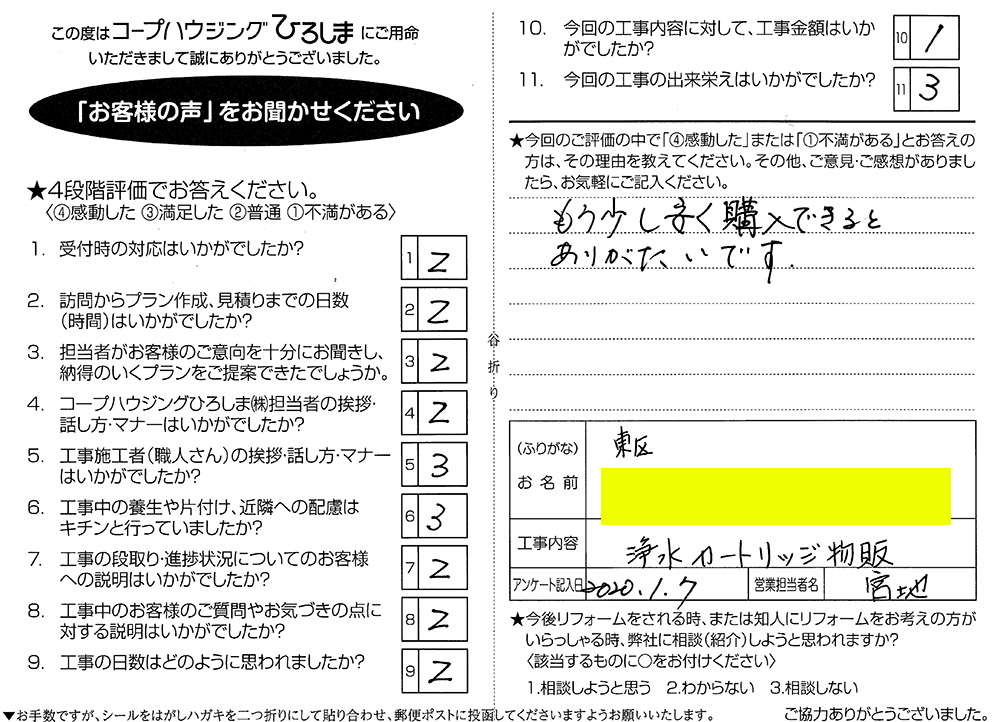 この度はコープハウジングひろしまにご用命
いただきまして誠にありがとうございました。
「お客様の声」をお聞かせください
★4段階評価でお答えください。
〈④感動した ③満足した ②普通 ①不満がある〉
1. 受付時の対応はいかがでしたか?
1 2
2. 訪問からプラン作成、見積りまでの日数
(時間)はいかがでしたか?
2 2
3. 担当者がお客様のご意向を十分にお聞きし、
納得のいくプランをご提案できたでしょうか。
3 2
4. コープハウジングひろしま㈱担当者の挨拶・
話し方・マナーはいかがでしたか?
4 2
5. 工事施工者(職人さん)の挨拶・話し方・マナー
はいかがでしたか?
5 3
6. 工事中の養生や片付け、近隣への配慮は
キチンと行っていましたか?
6 3
7. 工事の段取り・進捗状況についてのお客様
への説明はいかがでしたか?
7 2
8. 工事中のお客様のご質問やお気づきの点に
対する説明はいかがでしたか?
8 2
9. 工事の日数はどのように思われましたか?
9 2
▼お手数ですが、シールをはがしハガキを二つ折りにして貼り合わせ、郵便ポストに投函してくださいますようお願いいたします。
谷折り
10. 今回の工事内容に対して、工事金額はいか
がでしたか?
10 1
11. 今回の工事の出来栄えはいかがでしたか?
11 3
★今回のご評価の中で「④感動した」または「①不満がある」とお答えの
方は、その理由を教えてください。その他、ご意見・ご感想がありまし
たら、お気軽にご記入ください。
もう少し安く購入できると
ありがたいです.
(ふりがな)
お名前
東区
工事内容
浄水カートリッジ物販
アンケート記入日 2020.1.7 営業担当者名 宮地
★今後リフォームをされる時、または知人にリフォームをお考えの方が
いらっしゃる時、弊社に相談(紹介)しようと思われますか?
〈該当するものに○をお付けください〉
1.相談しようと思う 2.わからない 3.相談しない
ご協力ありがとうございました。